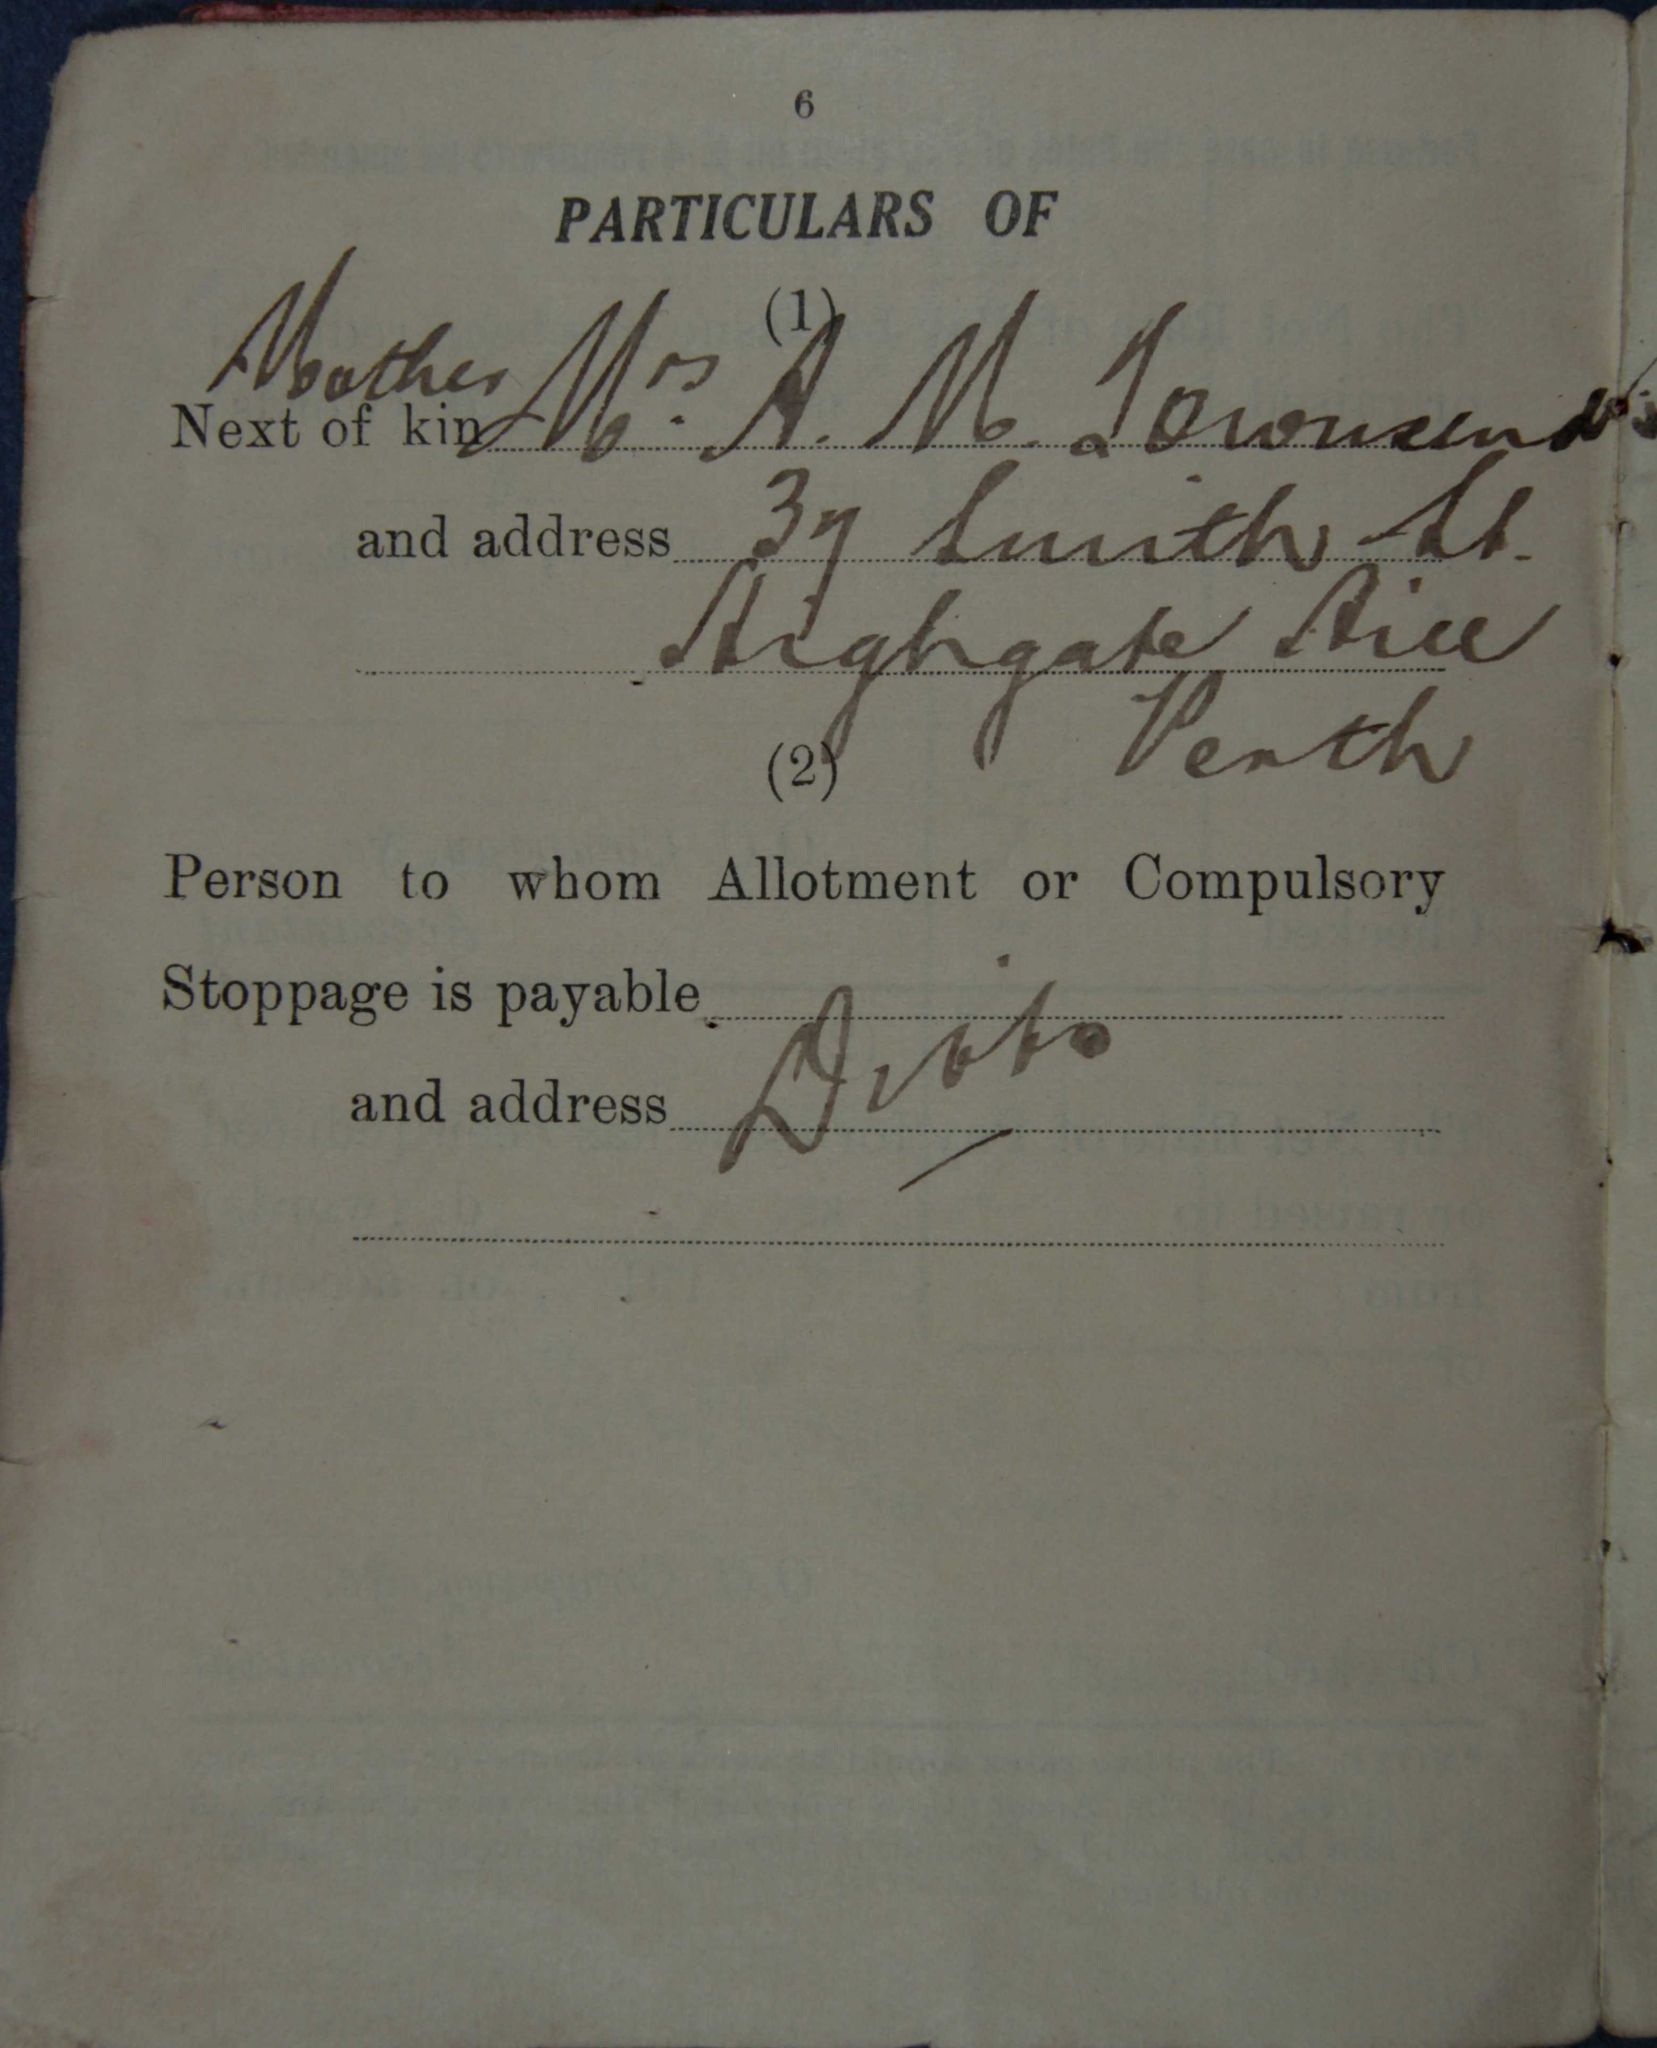 6
PARTICULARS OF
(1)
Mother
Next of kin Mrs. A. M. Townsend
and address 37 Smith St.
Highgate Hill
Perth
(2)
Person to whom Allotment or Compulsory
Stoppage is payable
Ditto
and address